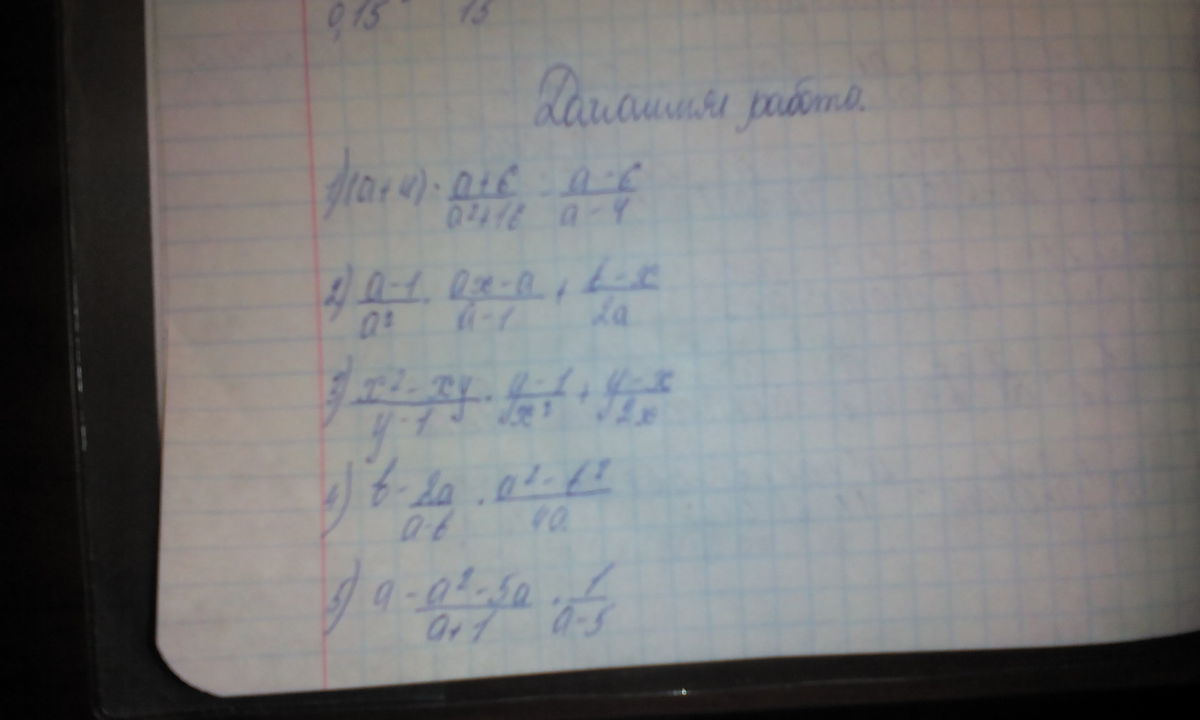 0,15 15
Домашняя работа.
1) (a+4) · a+б/a²+16 - a-б/a-4
2) a-1/a² · ax-a/a-1 + b-x/2a
3) x²-xy/y-1 · y-1/x² + y-x/2x
4) b - 2a/a-b · a²-b²/4a
5) a - a²-5a/a+1 · 1/a-5